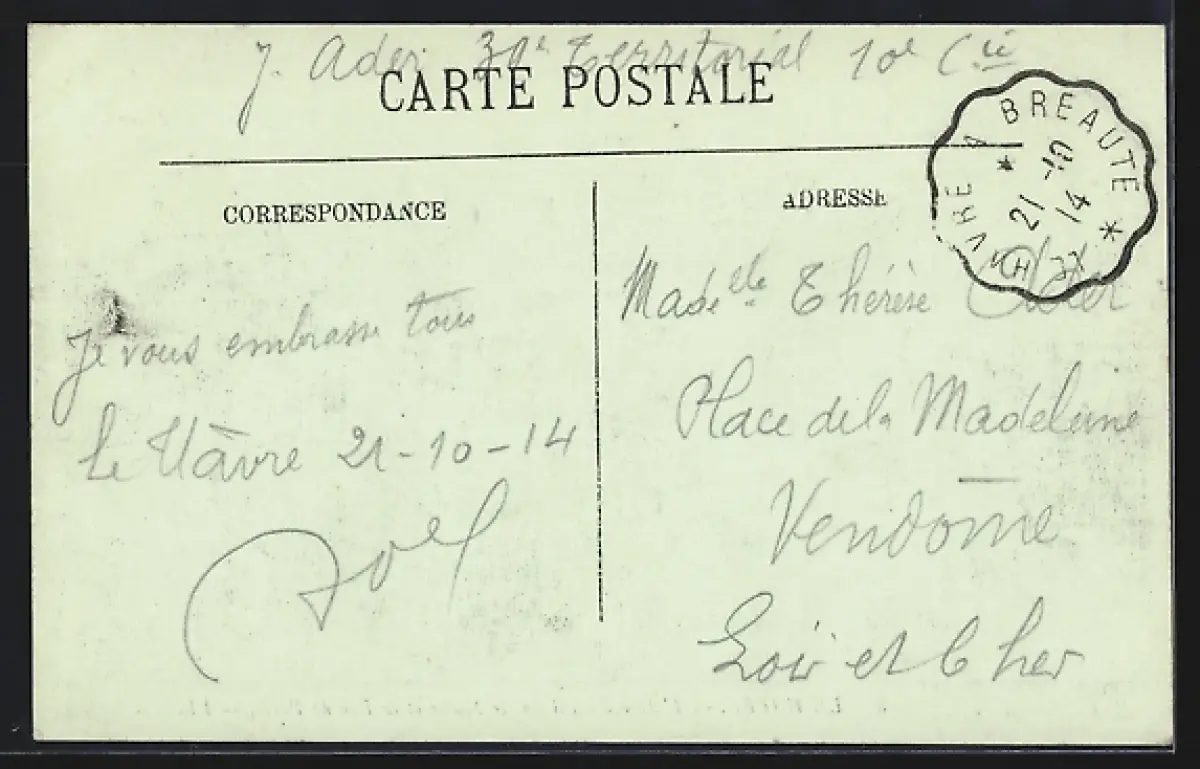 J. Ader 39e Territorial 10e Cie
CARTE POSTALE
VRE A BREAUTE
21 -10
14
CORRESPONDANCE
ADRESSE
Je vous embrasse tous
Le Hâvre 21-10-14
Joël
Madelle Thérèse Ader
Place de la Madeleine
Vendôme
Loir et Cher